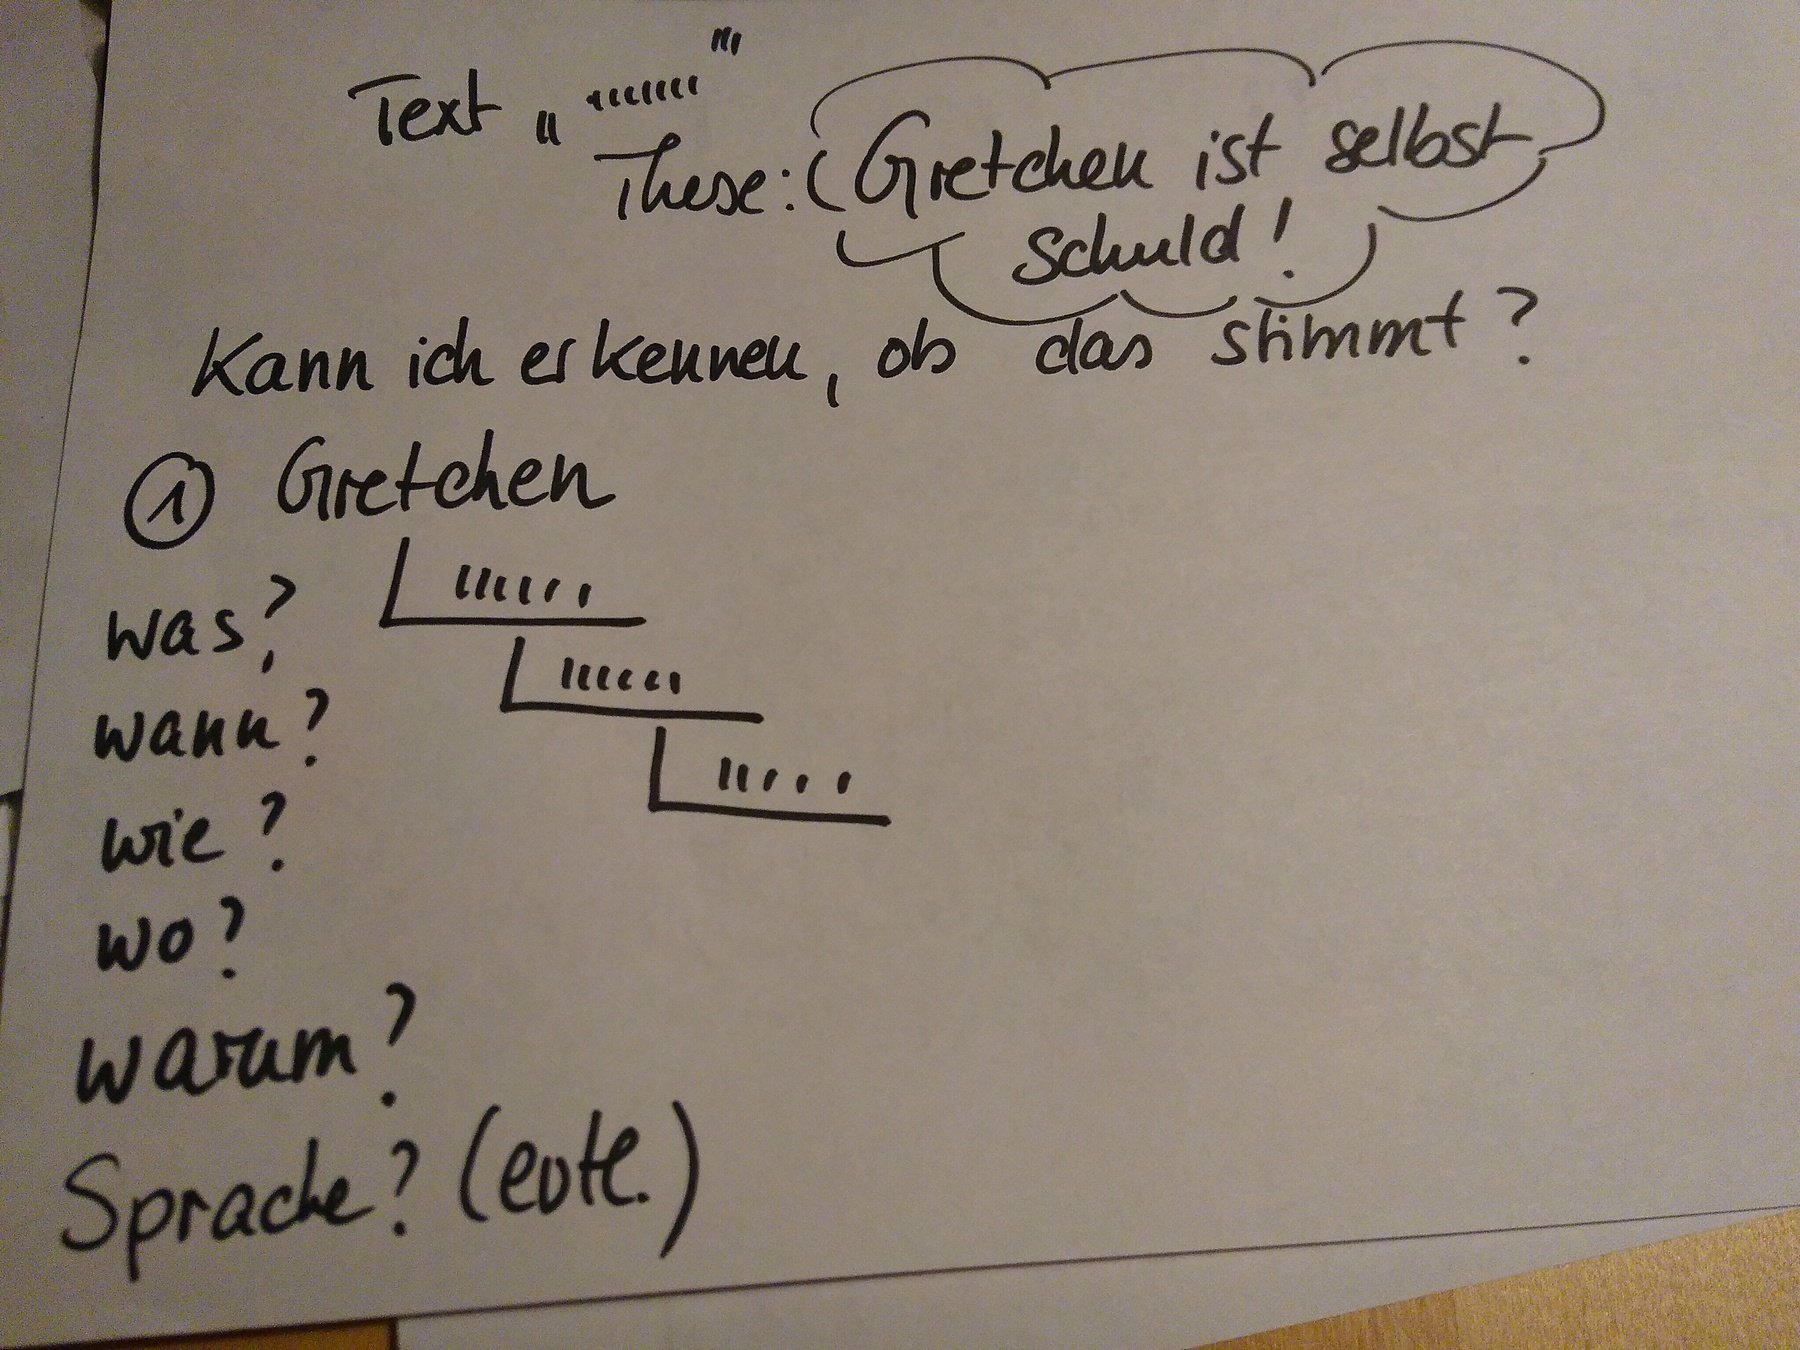 Text „ "
These: Gretchen ist selbst
schuld!
Kann ich erkennen, ob das stimmt?
① Gretchen
was?
wann?
wie?
wo?
warum?
Sprache? (evtl.)